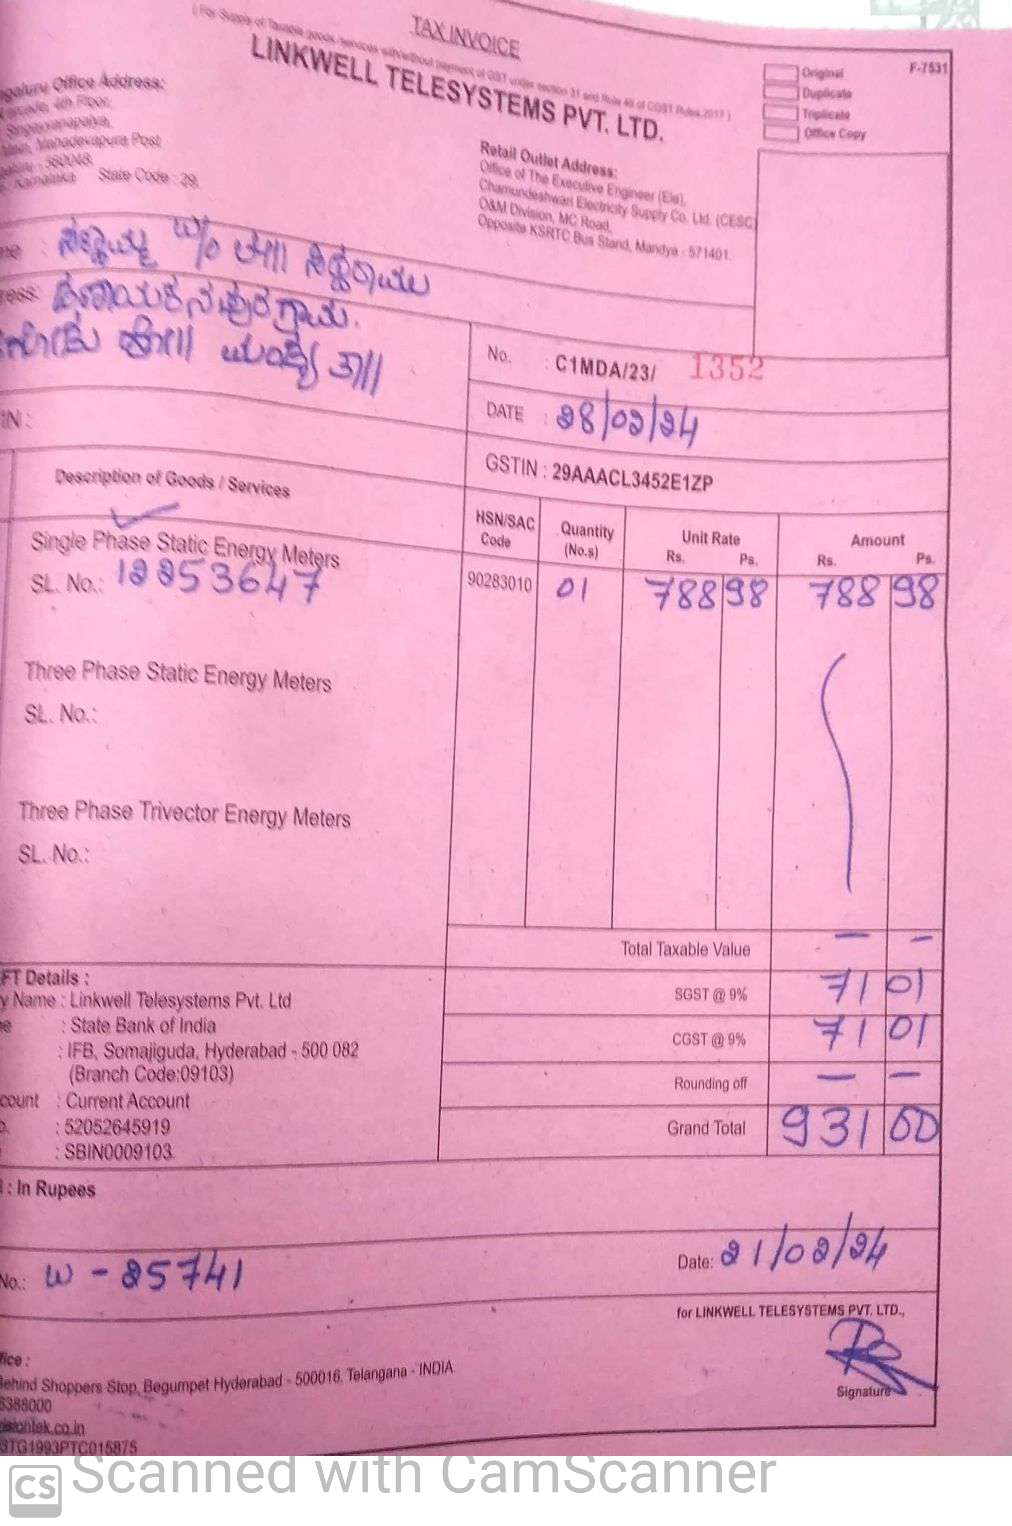 TAX INVOICE
( For Supply of Taxable goods /services with/without payment of GST under section 31 and Rule 46 of CGST Rules,2017 )
LINKWELL TELESYSTEMS PVT. LTD.
Original
F-7531
Duplicate
Triplicate
Office Copy
Office Address:
4th Floor,
Singayyanapalya,
Mahadevapura Post
560048.
Karnataka State Code : 29,
Retail Outlet Address:
Office of The Executive Engineer (Ele),
Chamundeshwari Electricity Supply Co. Ltd. (CESC)
O&M Division, MC Road,
Opposite KSRTC Bus Stand, Mandya - 571401.
W/o
ಗ್ರಾಮ.
ಮಂಡ್ಯ ತಾ||
No. : C1MDA/23/ 1352
DATE : 28/02/24
IN :
GSTIN : 29AAACL3452E1ZP
Description of Goods / Services
HSN/SAC Code
Quantity (No.s)
Unit Rate Rs. Ps.
Amount Rs. Ps.
Single Phase Static Energy Meters
SL. No.: 12253647 90283010 01 788 98 788 98
Three Phase Static Energy Meters
SL. No.:
Three Phase Trivector Energy Meters
SL. No.:
Total Taxable Value — —
FT Details :
y Name : Linkwell Telesystems Pvt. Ltd
SGST @ 9% 71 01
e : State Bank of India
: IFB, Somajiguda, Hyderabad - 500 082
CGST @ 9% 71 01
(Branch Code:09103)
Rounding off — —
count : Current Account
o. : 52052645919
Grand Total 931 00
: SBIN0009103
: In Rupees
No.: W - 25741
Date: 21/02/24
for LINKWELL TELESYSTEMS PVT. LTD.,
Signature
fice :
Behind Shoppers Stop, Begumpet Hyderabad - 500016, Telangana - INDIA
6388000
siontek.co.in
3TG1993PTC015875
CS Scanned with CamScanner